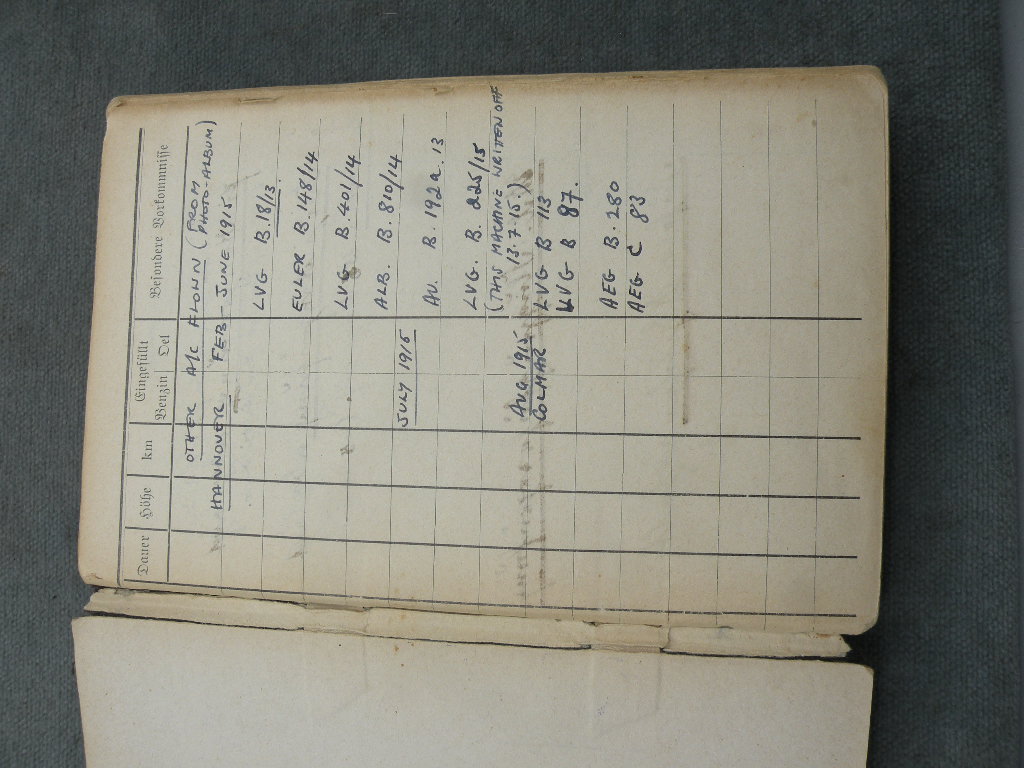 Dauer Höhe km Eingefüllt Besondere Vorkommnisse
Benzin Oel
OTHER A/C FLOWN (FROM PHOTO-ALBUM)
HANNOVER FEB - JUNE 1915
LVG B.18/13.
EULER B.148/14
LVG B.401/14
ALB. B. 810/14
JULY 1915
AV. B. 192a.13
LVG. B. 225/15
(THIS MACHINE WRITTEN OFF
13.7.15.)
AUG 1915 LVG B 113
COLMAR LVG B 87.
AEG B. 280
AEG C 83